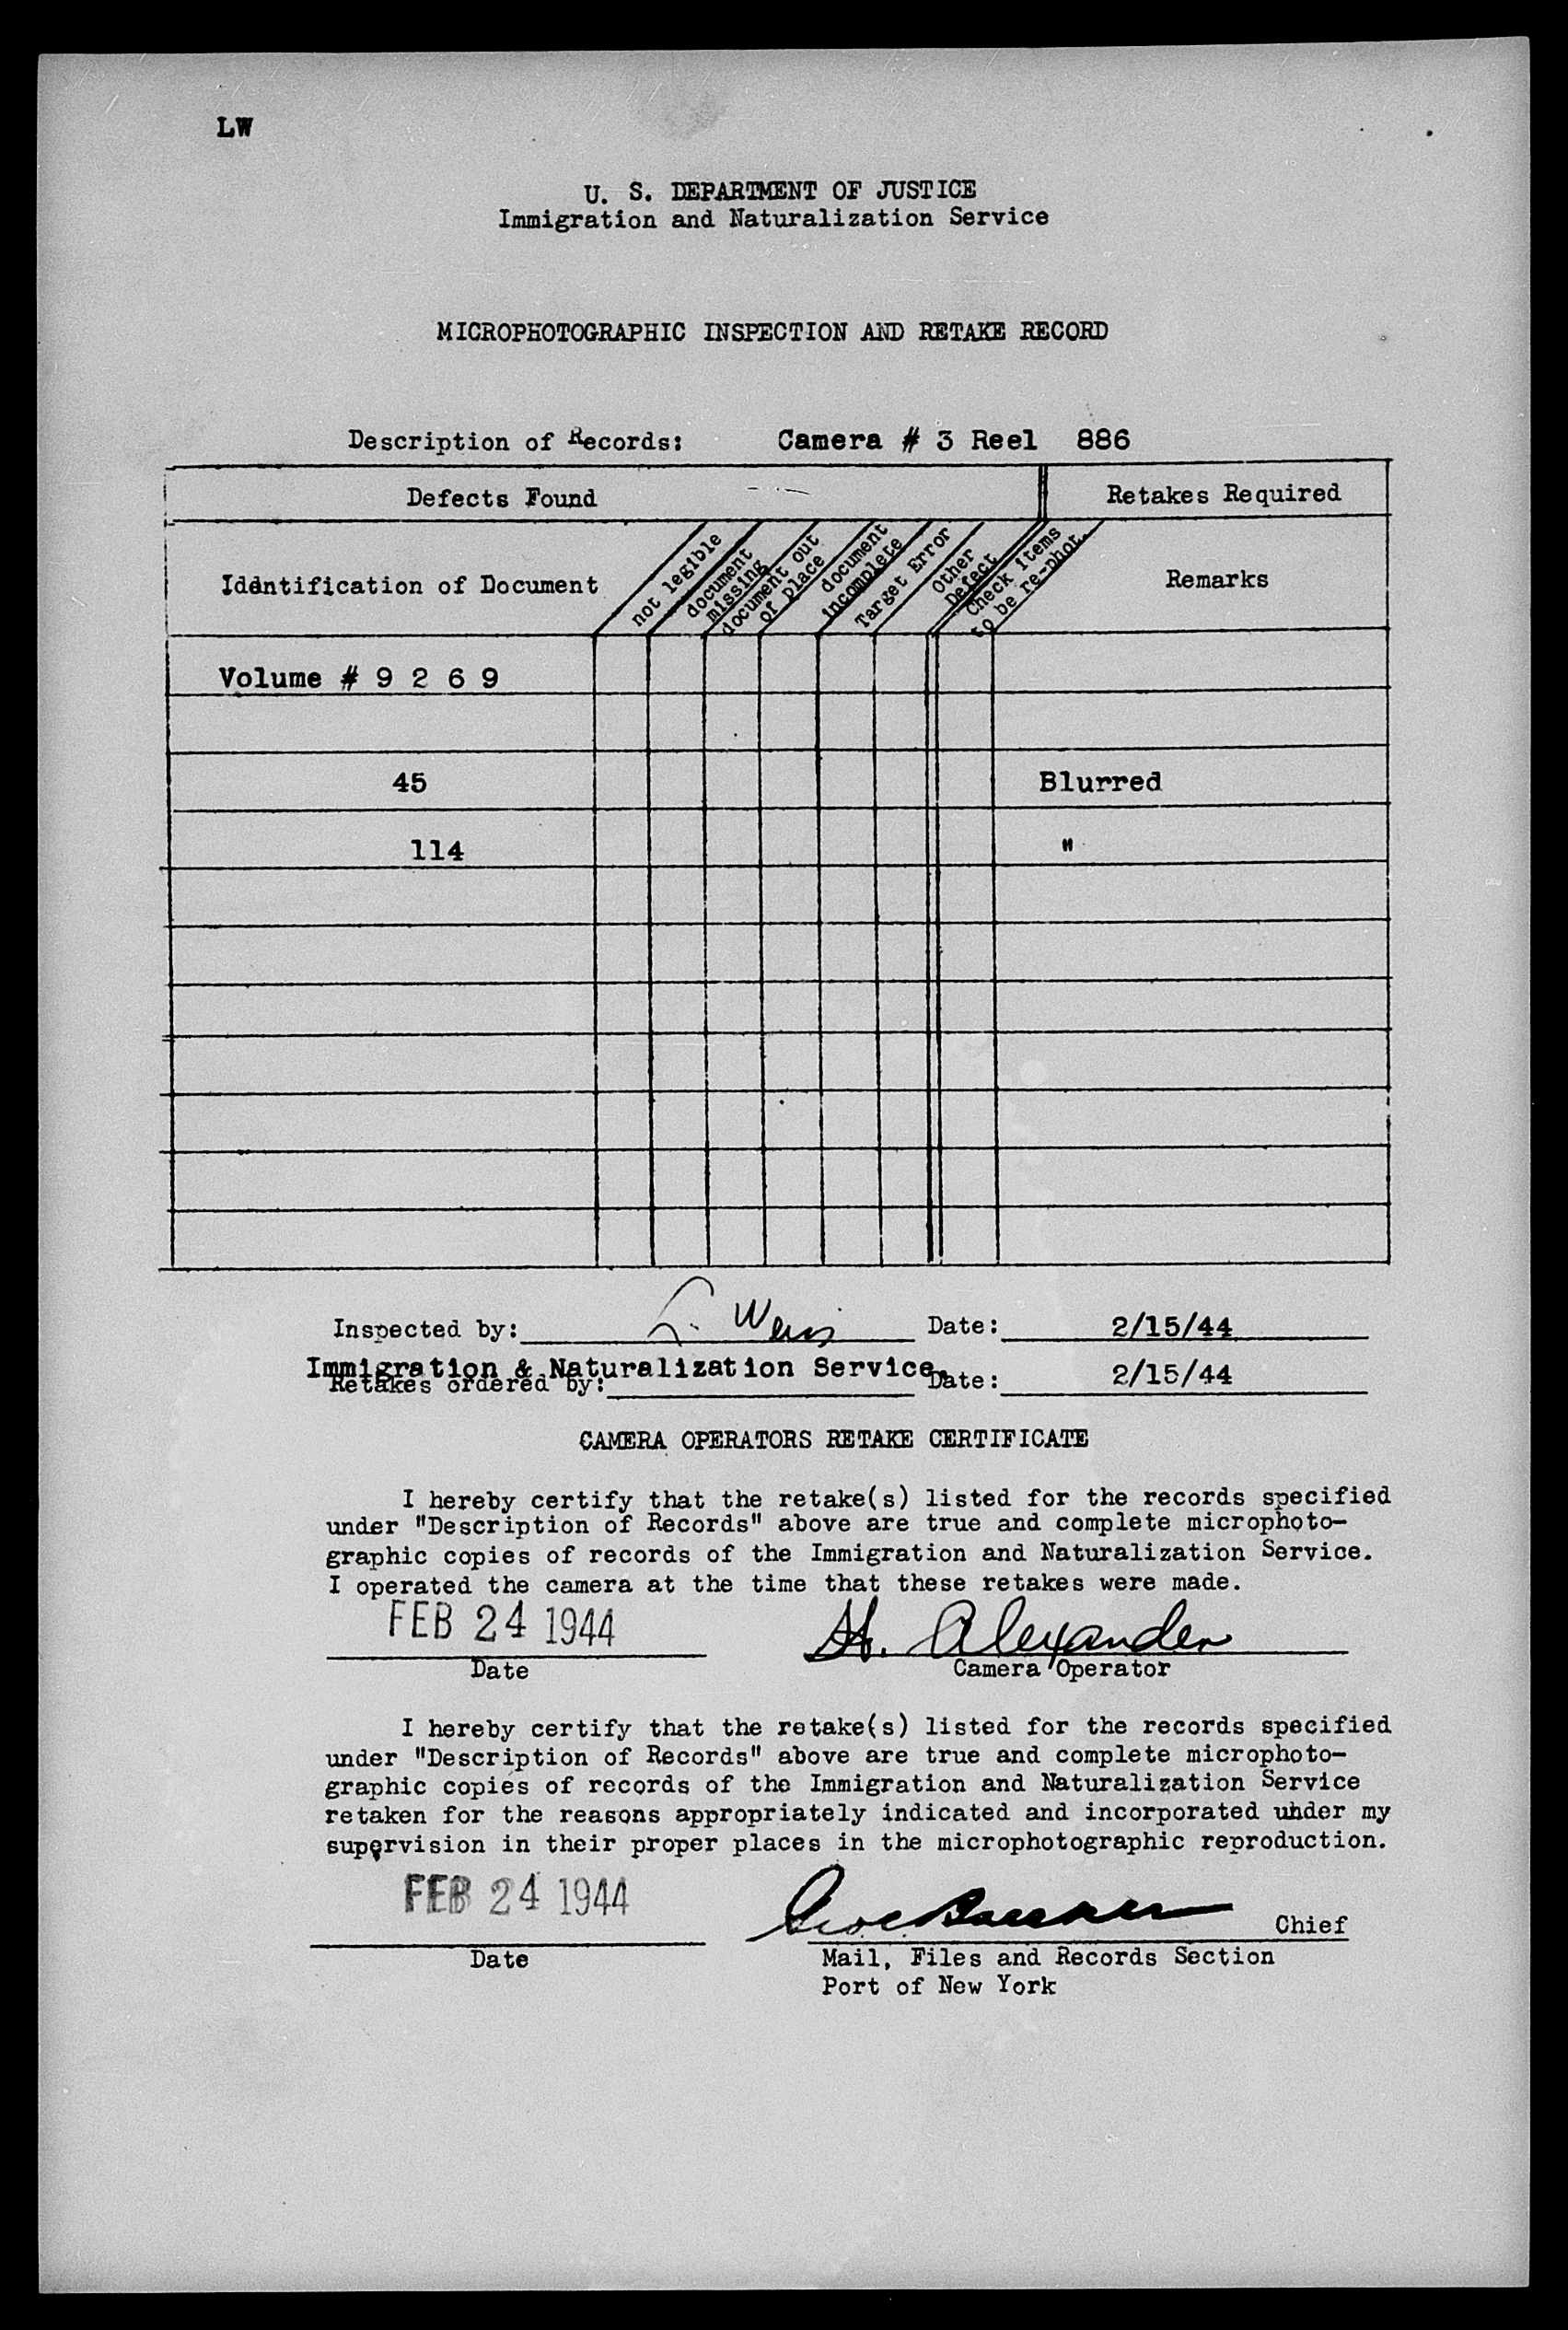 LW
U. S. DEPARTMENT OF JUSTICE
Immigration and Naturalization Service
MICROPHOTOGRAPHIC INSPECTION AND RETAKE RECORD
Description of Records: Camera # 3 Reel 886
Defects Found Retakes Required
Identification of Document not legible document missing document out of place document incomplete Target Error Other Defect Check items to be re-phot. Remarks
Volume # 9 2 6 9
45 Blurred
114 "
Inspected by: L. Weiss Date: 2/15/44
Immigration & Naturalization Service,
Retakes ordered by: Date: 2/15/44
CAMERA OPERATORS RETAKE CERTIFICATE
I hereby certify that the retake(s) listed for the records specified
under "Description of Records" above are true and complete microphoto-
graphic copies of records of the Immigration and Naturalization Service.
I operated the camera at the time that these retakes were made.
FEB 24 1944 H. Alexander
Date Camera Operator
I hereby certify that the retake(s) listed for the records specified
under "Description of Records" above are true and complete microphoto-
graphic copies of records of the Immigration and Naturalization Service
retaken for the reasons appropriately indicated and incorporated under my
supervision in their proper places in the microphotographic reproduction.
FEB 24 1944 Chief
Date Mail, Files and Records Section
Port of New York